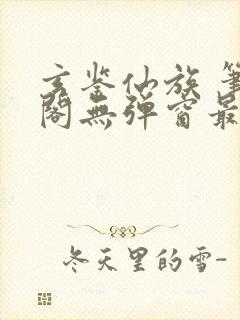 玄鉴仙族 笔
阁無弹窗最
冬天里的雪-